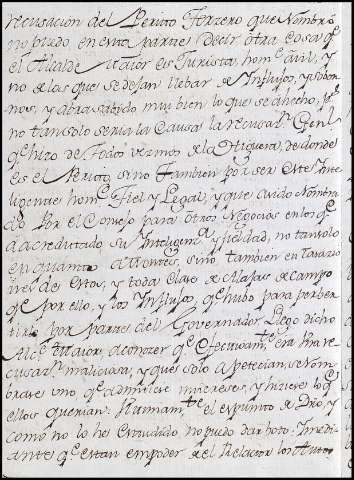 recusación del Perito Forzero que Nombró
no puedo en esta parte decir otra cosa q.e
el Alcalde Maior es Jurista, hom.e abil, y
no de las que se dejan llebar de Influjos, y sobor
nos, y abra sabido mui bien lo que se a hecho, p.r
no tan solo seria la Causa la recusaz.n Genl.
q.e hizo de todos Vezinos de la Higuera, de donde
es el Perito, sino tambien por ser este Inte
ligente hom.e Fiel y Legal, y que a sido Nombra
do por el Consejo para otros Negocios en los q.e
a acreditado su Inteligenz.a y fielidad, no tan solo
en quanto a Montes, sino tambien en Tasazio
nes de estos, y toda Clase de Alajas de campo
q.e por ello, y los Influjos, q.e hubo para perben
tirlo por parte del Governador, llego dicho
Alc.e Maior a conozer q.e efectivam.te era la re
cusaz.n maliciosa, y que solo apetecian, se Nom
brase uno q.e admitiese intereses, y hiziere lo q.e
ellos querian. Ultimam.te el espurito de Dro, y
como no lo he estudiado no puedo dar boto. Medi
ante q.e estan en poder del Relator los Autos